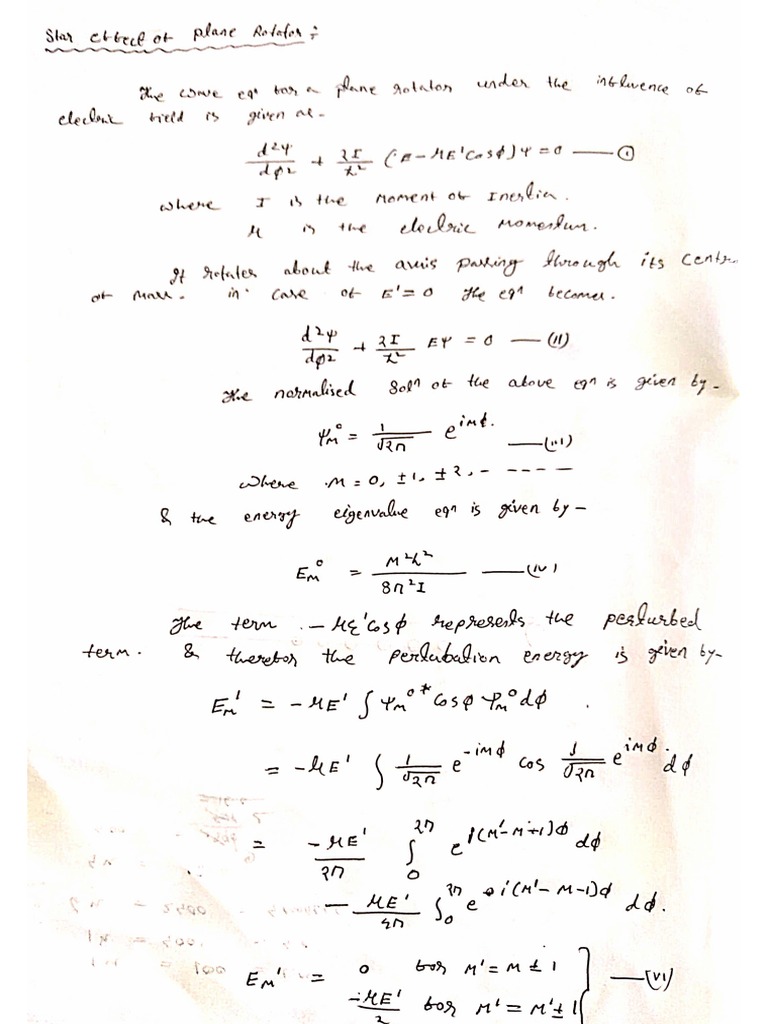 Star effect of plane Rotator :-
The wave eqn for a plane rotator under the influence of
electric field is given as-
d²ψ/dφ² + 2I/ħ² (E - μE'Cosφ) ψ = 0 — (I)
where I is the Moment of Inertia.
μ is the electric Momentum.
It rotates about the axis passing through its Centr
of mass. in case of E' = 0 The eqn becomes.
d²ψ/dφ² + 2I/ħ² Eψ = 0 — (II)
The normalised Soln of the above eqn is given by-
ψM⁰ = 1/√2π e^iMφ. — (III)
where M = 0, ±1, ±2, - - - - -
& the energy eigenvalue eqn is given by -
EM⁰ = M²h²/8π²I — (IV)
The term - μE'Cosφ represents the perturbed
term. & therefor the pertubation energy is given by-
EM' = -μE' ∫ ψM⁰* Cosφ ψM⁰ dφ
= -μE' ∫ 1/√2π e^-iMφ cos 1/√2π e^iMφ. dφ
= -μE'/2π ∫₀^2π e^i(M'-M+1)φ dφ
- μE'/4π ∫₀^2π e^i(M'-M-1)φ dφ.
EM' = 0 for M' = M ± 1 } — (VI)
-μE'/2 for M' = M' ± 1